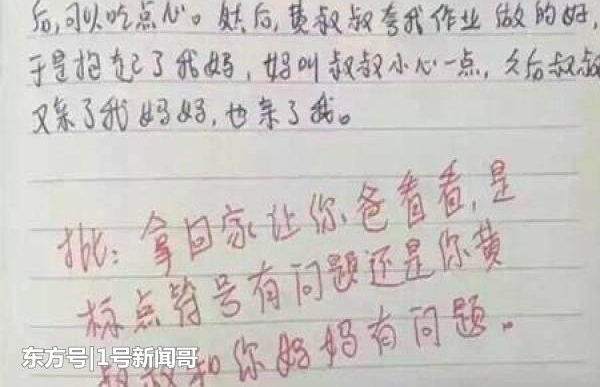 后,可以吃点心。然后,黄叔叔夸我作业做的好,
于是抱起了我妈,妈叫叔叔小心一点,久后叔叔
又亲了我妈妈,也亲了我。
批:拿回家让你爸看看,是
标点符号有问题还是你黄
叔叔和你妈妈有问题。
东方号|1号新闻哥